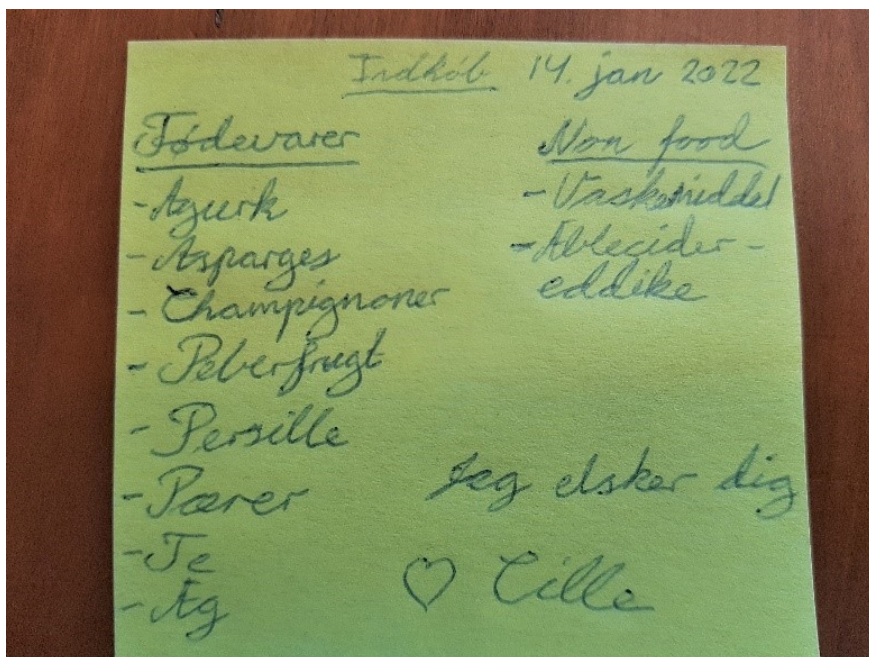 Indkøb 14. jan 2022
Fødevarer
- Agurk
- Asparges
- Champignoner
- Peberfrugt
- Persille
- Pærer
- Te
- Æg
Non food
- Vaskemiddel
- Æblecider-
eddike
Jeg elsker dig
♡ Cille